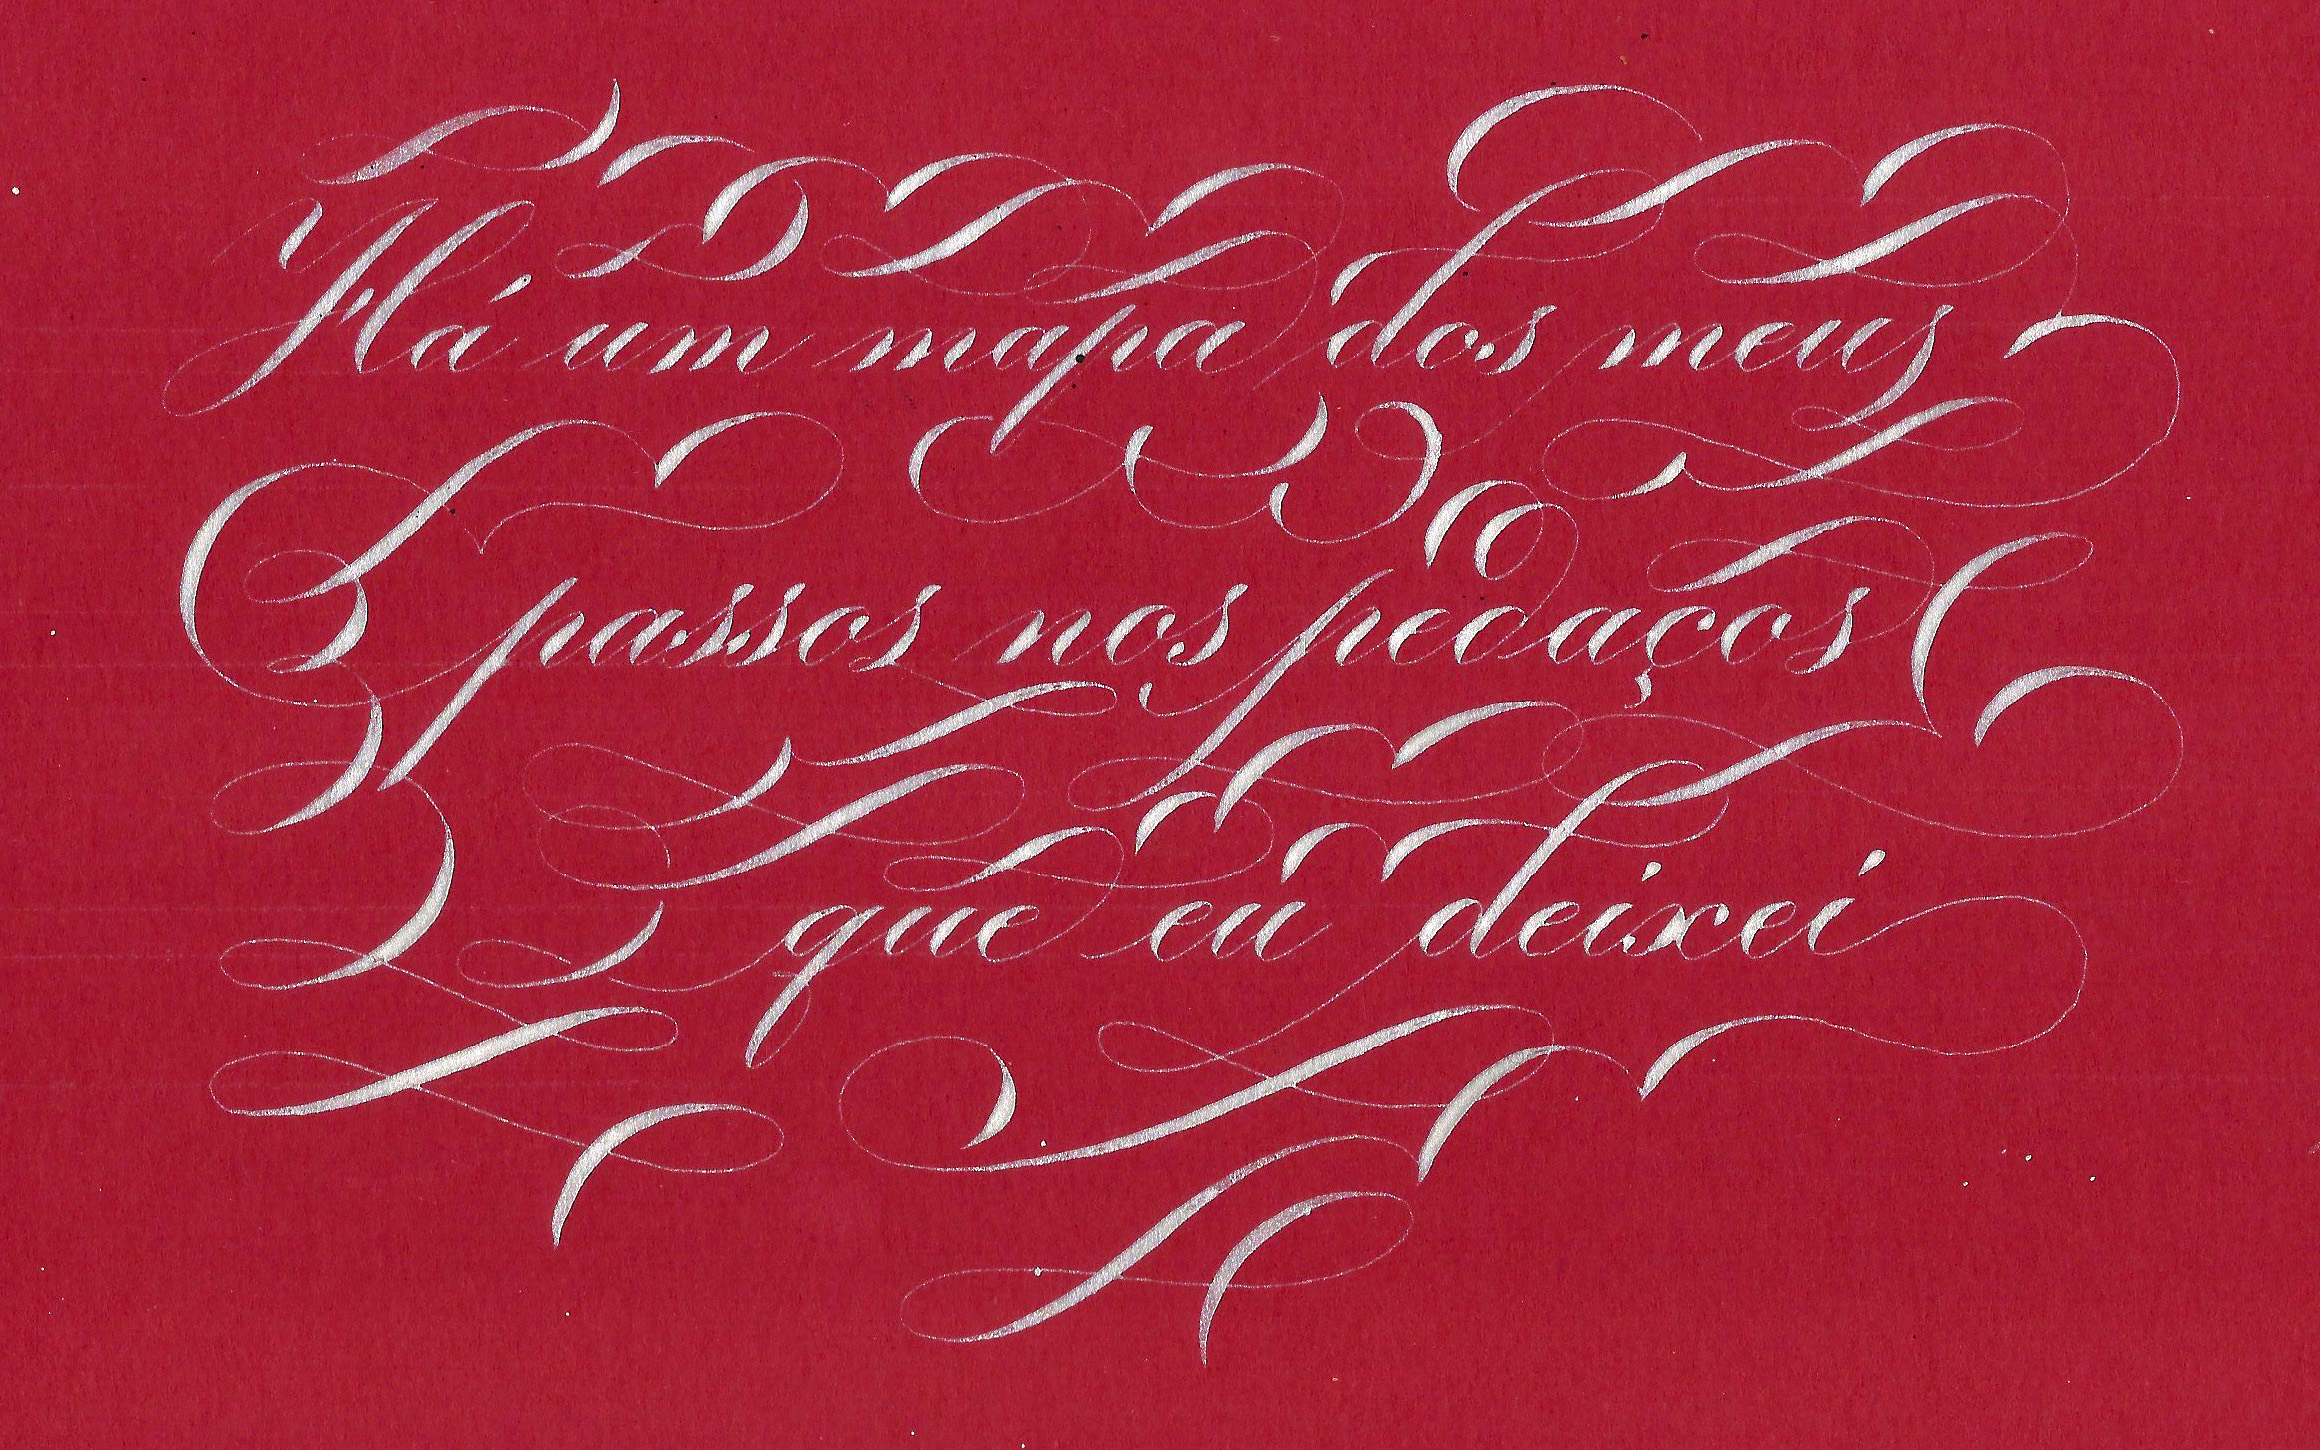 Há um mapa dos meus
passos nos pedaços
que eu deixei